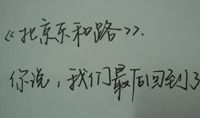 《北京东和路》.
你说,我们最后回到了